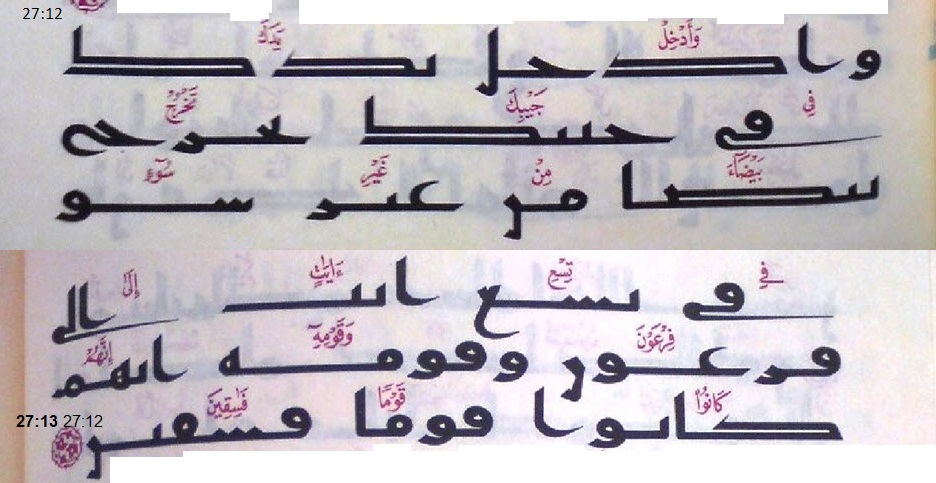 27:12
وَأَدْخِلْ يَدَكَ
وادحل ىدك
فِى جَيْبِكَ تَخْرُجْ
فى حىىك ىحرح
بَيْضَآءَ مِنْ غَيْرِ سُوٓءٍ
ىىصا مں عىر سو
فِى تِسْعِ ءَايَٰتٍ إِلَىٰ
فى ىسع اىٮ الى
فِرْعَوْنَ وَقَوْمِهِۦٓ إِنَّهُمْ
فرعوں وقومه اىهم
كَانُوا۟ قَوْمًا فَٰسِقِينَ
كاىوا قوما فسقىں
27:13 27:12